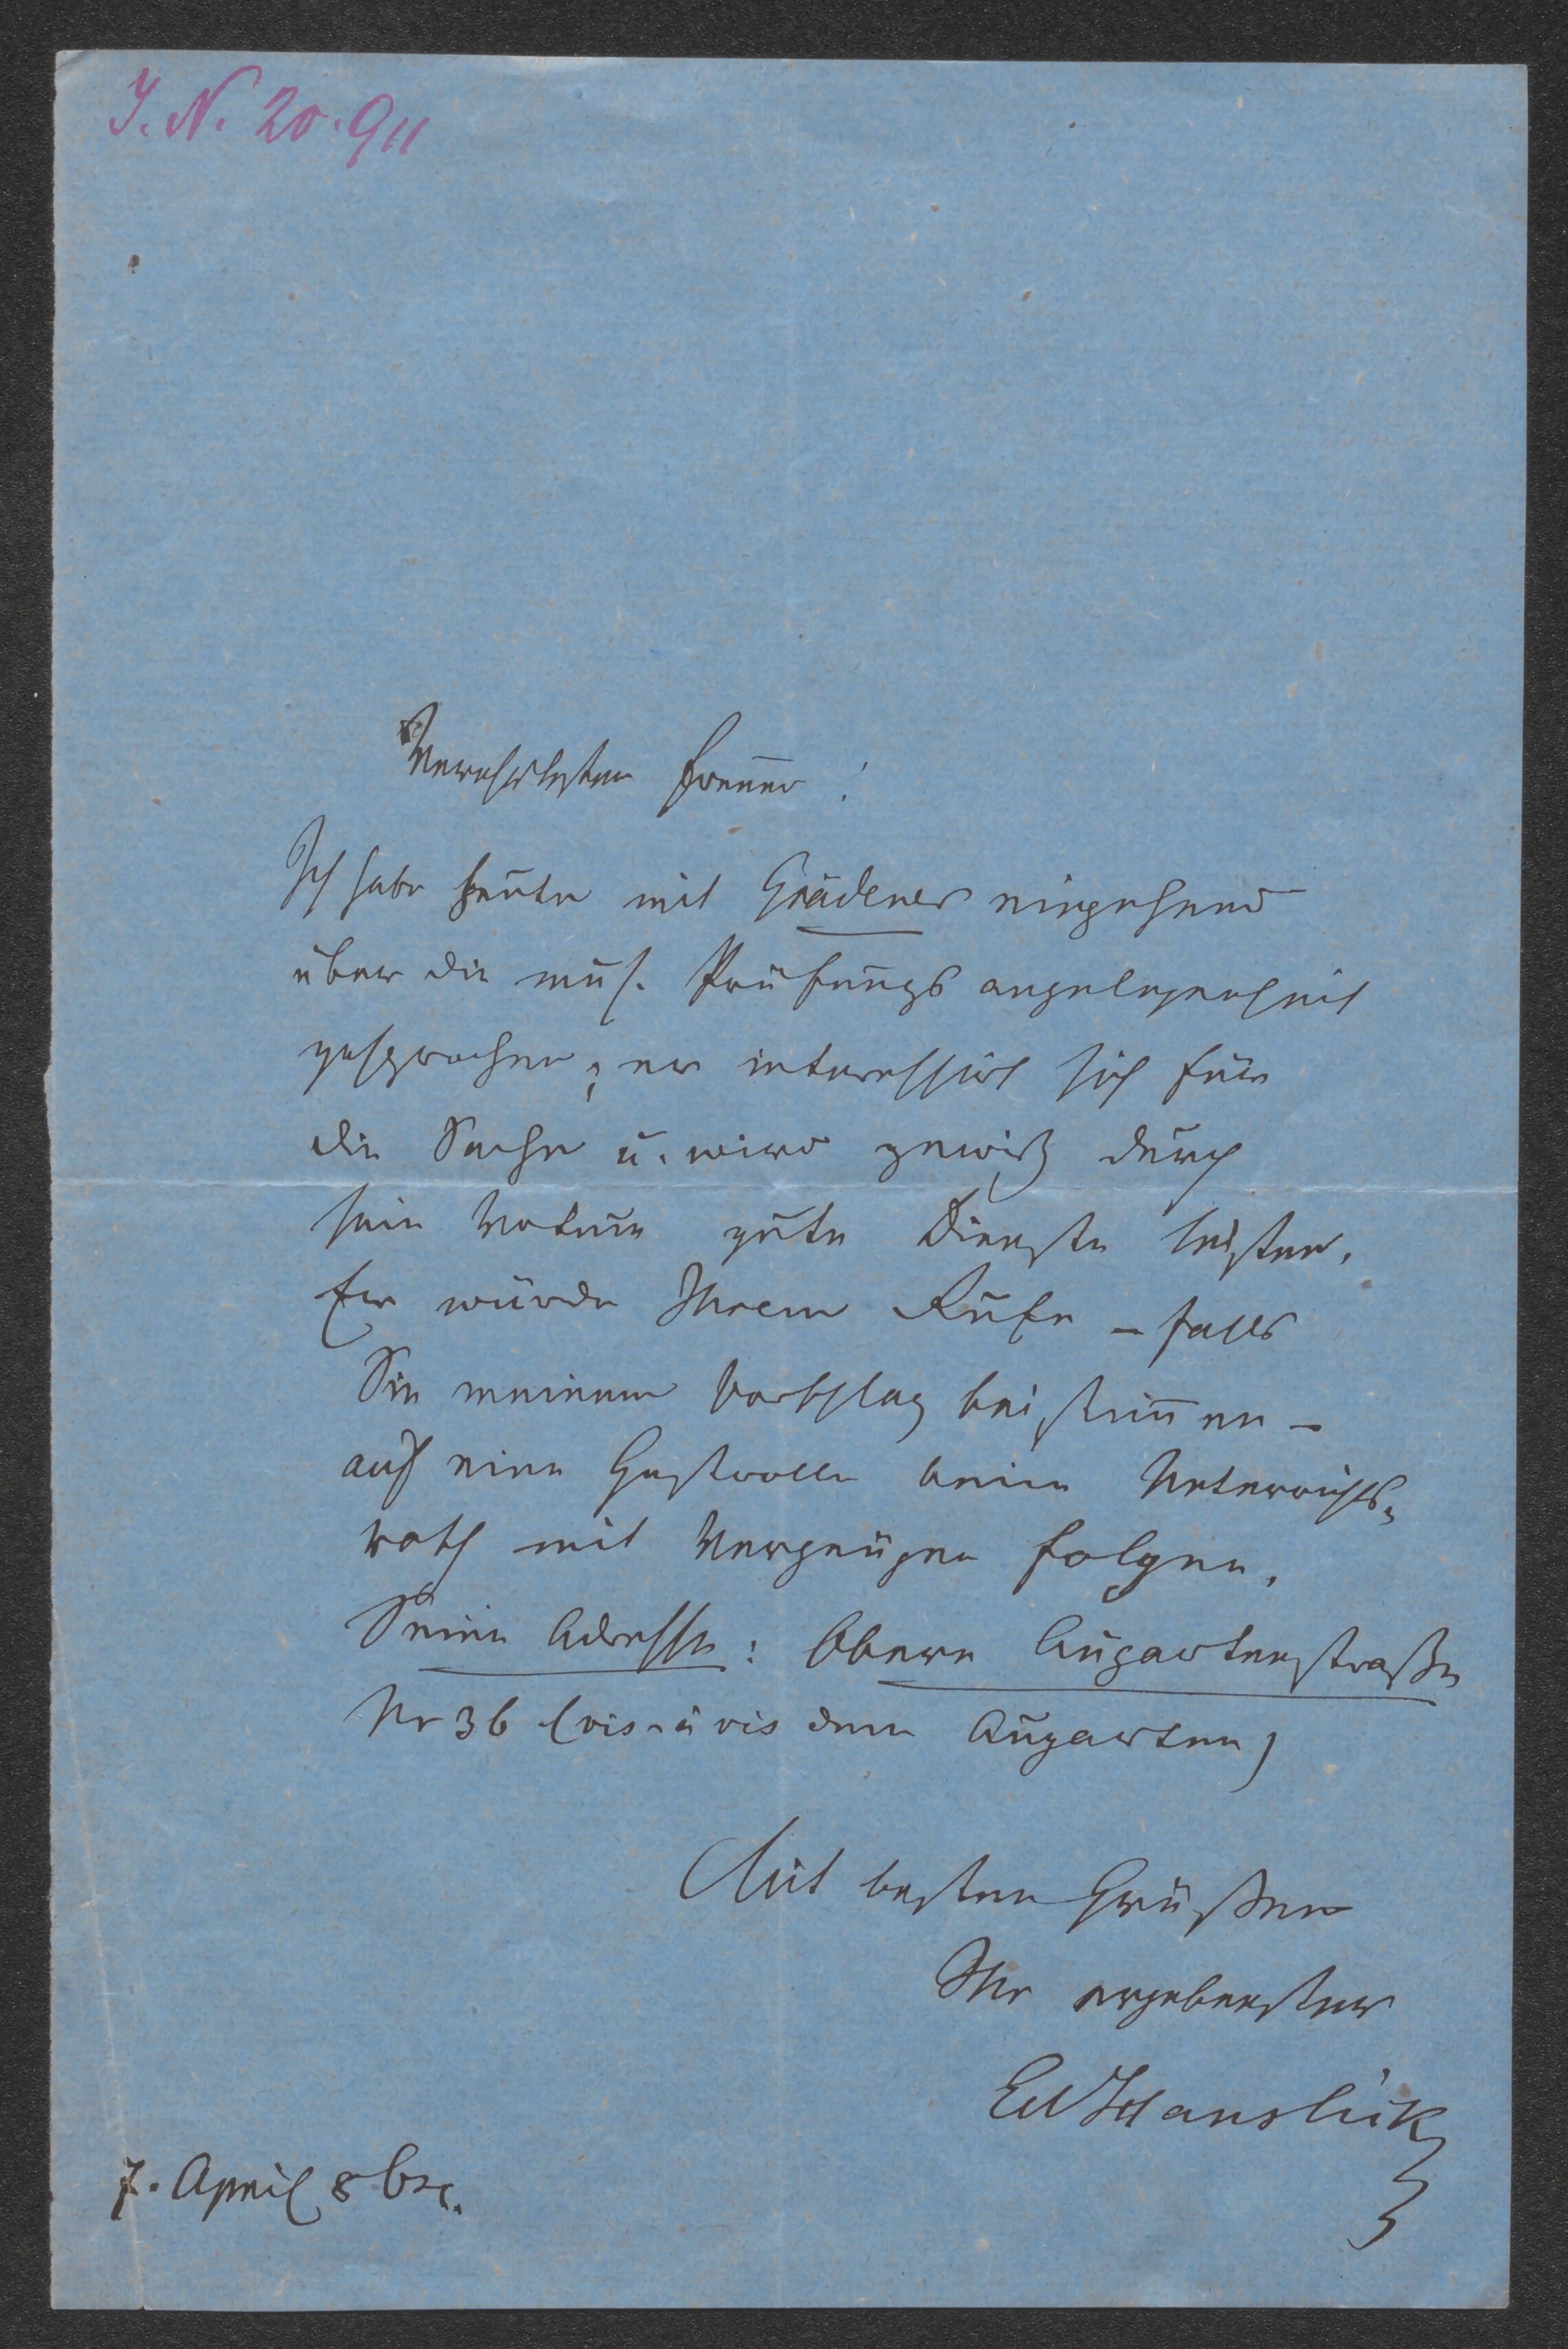 J. N. 20.911
Verehrtester Freund!
Ich habe heute mit Grädener eingehend
über die mus. Prüfungsangelegenheit
gesprochen; er interessirt sich für
die Sache u. wird gewiß durch
sein Votum gute Dienste leisten.
Er würde Ihrem Rufe – falls
Sie meinem Vorschlag beistim̅en –
auf eine Gastrolle beim Unterrichts-
rath mit Vergnügen folgen.
Seine Adresse: Obere Augartenstraße
Nr 36 (vis-à vis dem Augarten)
Mit besten Grüßen
Ihr ergebenster
Ed Hanslick
7. April